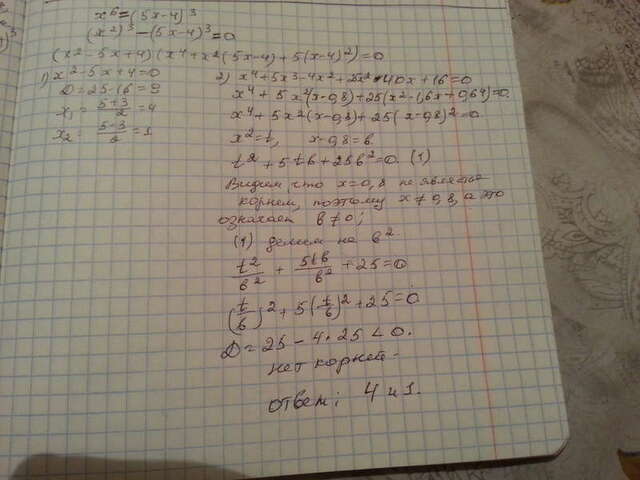 x⁶=(5x-4)³
(x²)³-(5x-4)³=0
(x²-5x+4)(x⁴+x²(5x-4)+5(x-4)²)=0
1) x²-5x+4=0
D=25-16=9
x₁=(5+3)/2=4
x₂=(5-3)/2=1
2) x⁴+5x³-4x²+25x²-40x+16=0
x⁴+5x²(x-0,8)+25(x²-1,6x+0,64)=0.
x⁴+5x²(x-0,8)+25(x-0,8)²=0.
x²=t, x-0,8=b.
t²+5tb+25b²=0. (1)
Видим что x=0,8 не является
корнем, поэтому x≠0,8, а это
означает b≠0;
(1) делим на b²
t²/b² + 5tb/b² +25=0
(t/b)²+5(t/b)²+25=0
D=25-4·25<0.
нет корней.
ответ: 4 и 1.